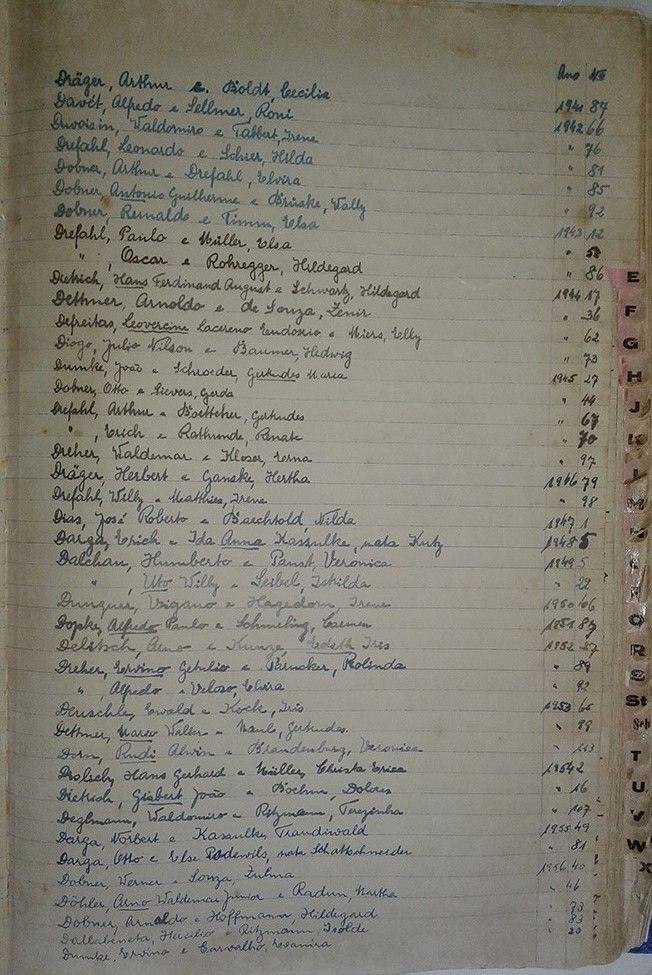 Ano No
Dräger, Arthur e Boldt, Cecilia 1941 87
Davét, Alfredo e Sellmer, Roni 1942 66
Duvoisin, Waldomiro e Tabbert, Irene " 76
Drefahl, Leonardo e Schier, Hilda " 81
Dobner, Arthur e Drefahl, Elvira " 85
Dobner, Antonio Guilherme e Brüske, Wally " 92
Dobner, Reinaldo e Timm, Elsa 1943 12
Drefahl, Paulo e Müller, Elsa " 58
" , Oscar e Rohregger, Hildegard " 86
Dietrich, Hans Ferdinand August e Schwartz, Hildegard 1944 17
Dettmer, Arnoldo e de Souza, Zenir " 36
Defreitas, Leovercine Lacereno e Miers, Elly " 62
Diogo, Julio Nilson e Baumer, Hedwig " 73
Dumke, João e Schroeder, Gertrudes Maria 1945 27
Dobner, Otto e Sievers, Gerda " 44
Drefahl, Arthur e Boettcher, Gertrudes " 67
" , Erich e Rathunde, Renate " 70
Dreher, Waldemar e Kloser, Erna " 97
Dräger, Herbert e Ganske, Hertha 1946 79
Drefahl, Willy e Matthies, Irene " 98
Dias, José Roberto e Baechtold, Nilda 1947 1
Darga, Erich e Ida Anna Kassulke, nata Kutz 1948 5
Dalchau, Humberto e Paust, Veronica 1949 5
" , Uto Willy e Seibel, Iselda " 22
Dunquer, Vigano e Hagedorn, Irene 1950 66
Dopke, Alfredo Paulo e Schmeling, Carmen 1951 87
Delitsch, Arno e Kunze, Edith Iris 1952 87
Dreher, Ervino Getulio e Parucker, Rolinda " 89
" Alfredo e Veloso, Elvira " 92
Deuschle, Ewald e Kock, Iris 1953 65
Dettmer, Marco Walter e Maul, Gertrudes " 99
Dorn, Rudi Alwin e Brandenburg, Veronica " 113
Drolsch, Hans Gerhard e Müller, Christa Erica 1954 2
Dietrich, Gisbert João e Boehm, Dolores " 16
Deglmann, Waldomiro e Ritzmann, Terezinha " 107
Darga, Norbert e Kassulke, Traudiwald 1955 49
Darga, Otto e Else Podewils, nata Schattschneider " 81
Dobner, Werner e Souza, Zulma 1956 40
Döhler, Arno Waldemar Junior e Radun, Martha " 46
Dobner, Arnaldo e Hoffmann, Hildegard " 73
Dallabeneta, Hercilio e Ritzmann, Isolde " 83
Dumke, Ervino e Carvalho, Esanira " 20
E
F
G
H
J
K
L
M
N
O
R
S
St
Sch
T
U
V
W
X